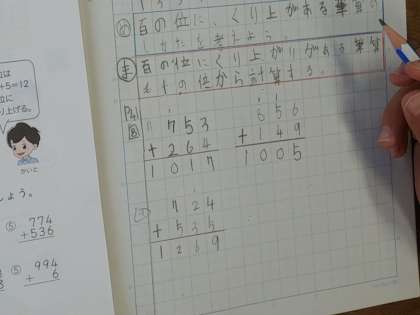 め 百の位に、くり上がりがある筆算の
しかたを考えよう。
ま 百の位にくり上がりがある筆算
の位から計算する。
753
+264
1017
+149
1005
724
+535
1269
は
+5=12
位に
り上げる。
かいと
しょう。
⑤ 774
+536
⑤ 994
+ 6